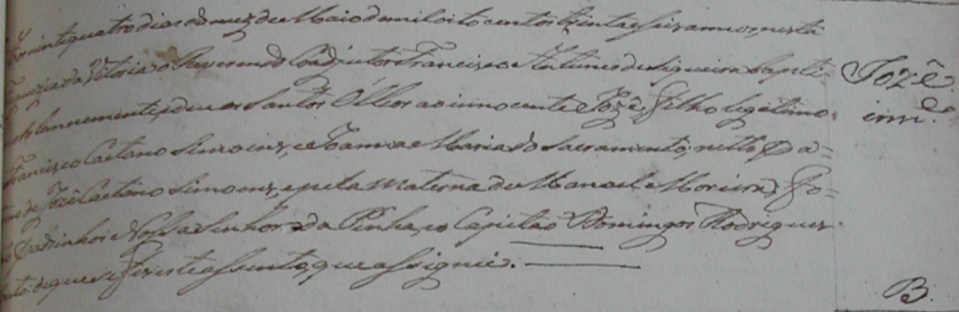 vinte quatro dias do mez de Maio de mil oito centos trinta e seis annos, nesta
Freguezia da Vitoria o Reverendo Coadjutor Francisco Antunes de Siqueira bapti-
solemnemente, e deu os Santos Olleos ao innocente Jozê, filho legitimo
Francisco Caetano Simoens, e Joanna Maria do Sacramento, netto Pa-
de Jozê Caetano Simoens, e pela Materna de Manoel Moreira, Fo-
Padrinhos Nossa Senhora da Penha, e o Capitão Domingos Rodrigues
de que se fez este assento, que assignei.
Jozê
inn.e
B.